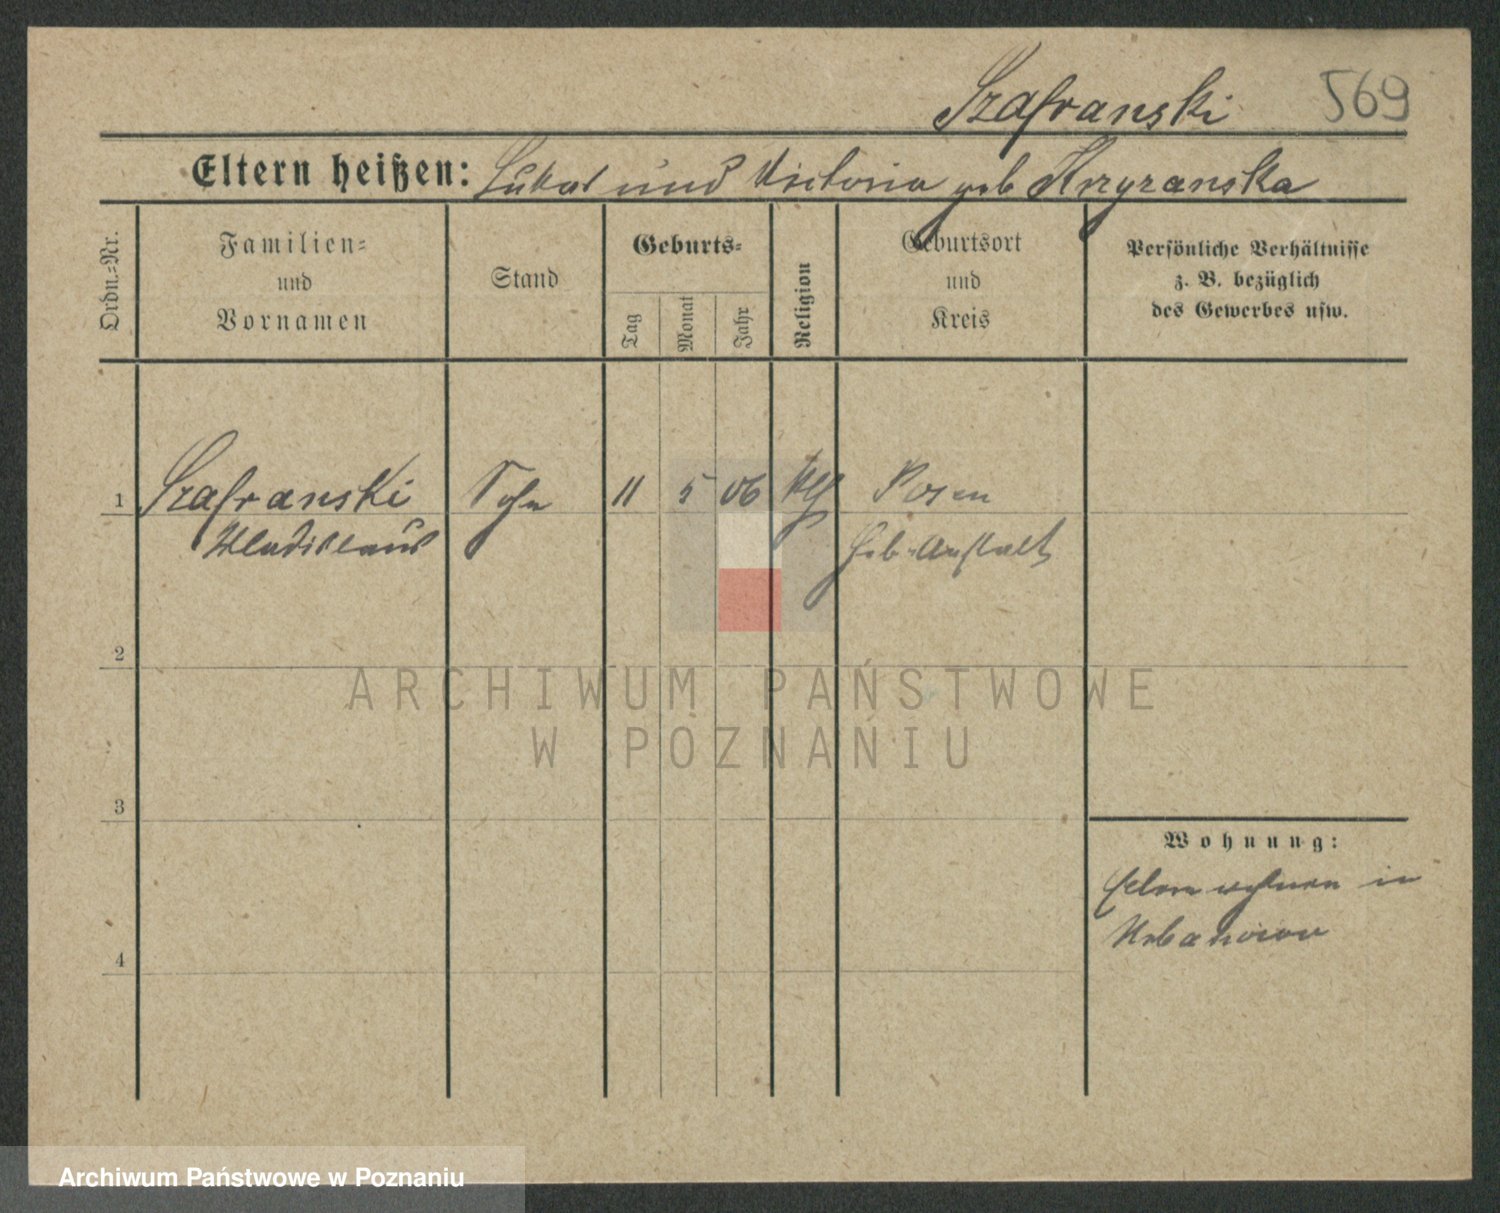 Szafranski 569
Eltern heißen: Lukas und Victoria geb Krzyzanska
Ordn.=Nr.
Familien=
und
Vornamen
Stand
Geburts=
Tag
Monat
Jahr
Religion
Geburtsort
und
Kreis
Persönliche Verhältnisse
z. B. bezüglich
des Gewerbes usw.
1 Szafranski Sohn 11 5 06 Posen
Wladislaus Geb-Anstalt
2
ARCHIWUM PAŃSTWOWE
W POZNANIU
3
Wohnung:
Eltern wohnen in
4
Archiwum Państwowe w Poznaniu